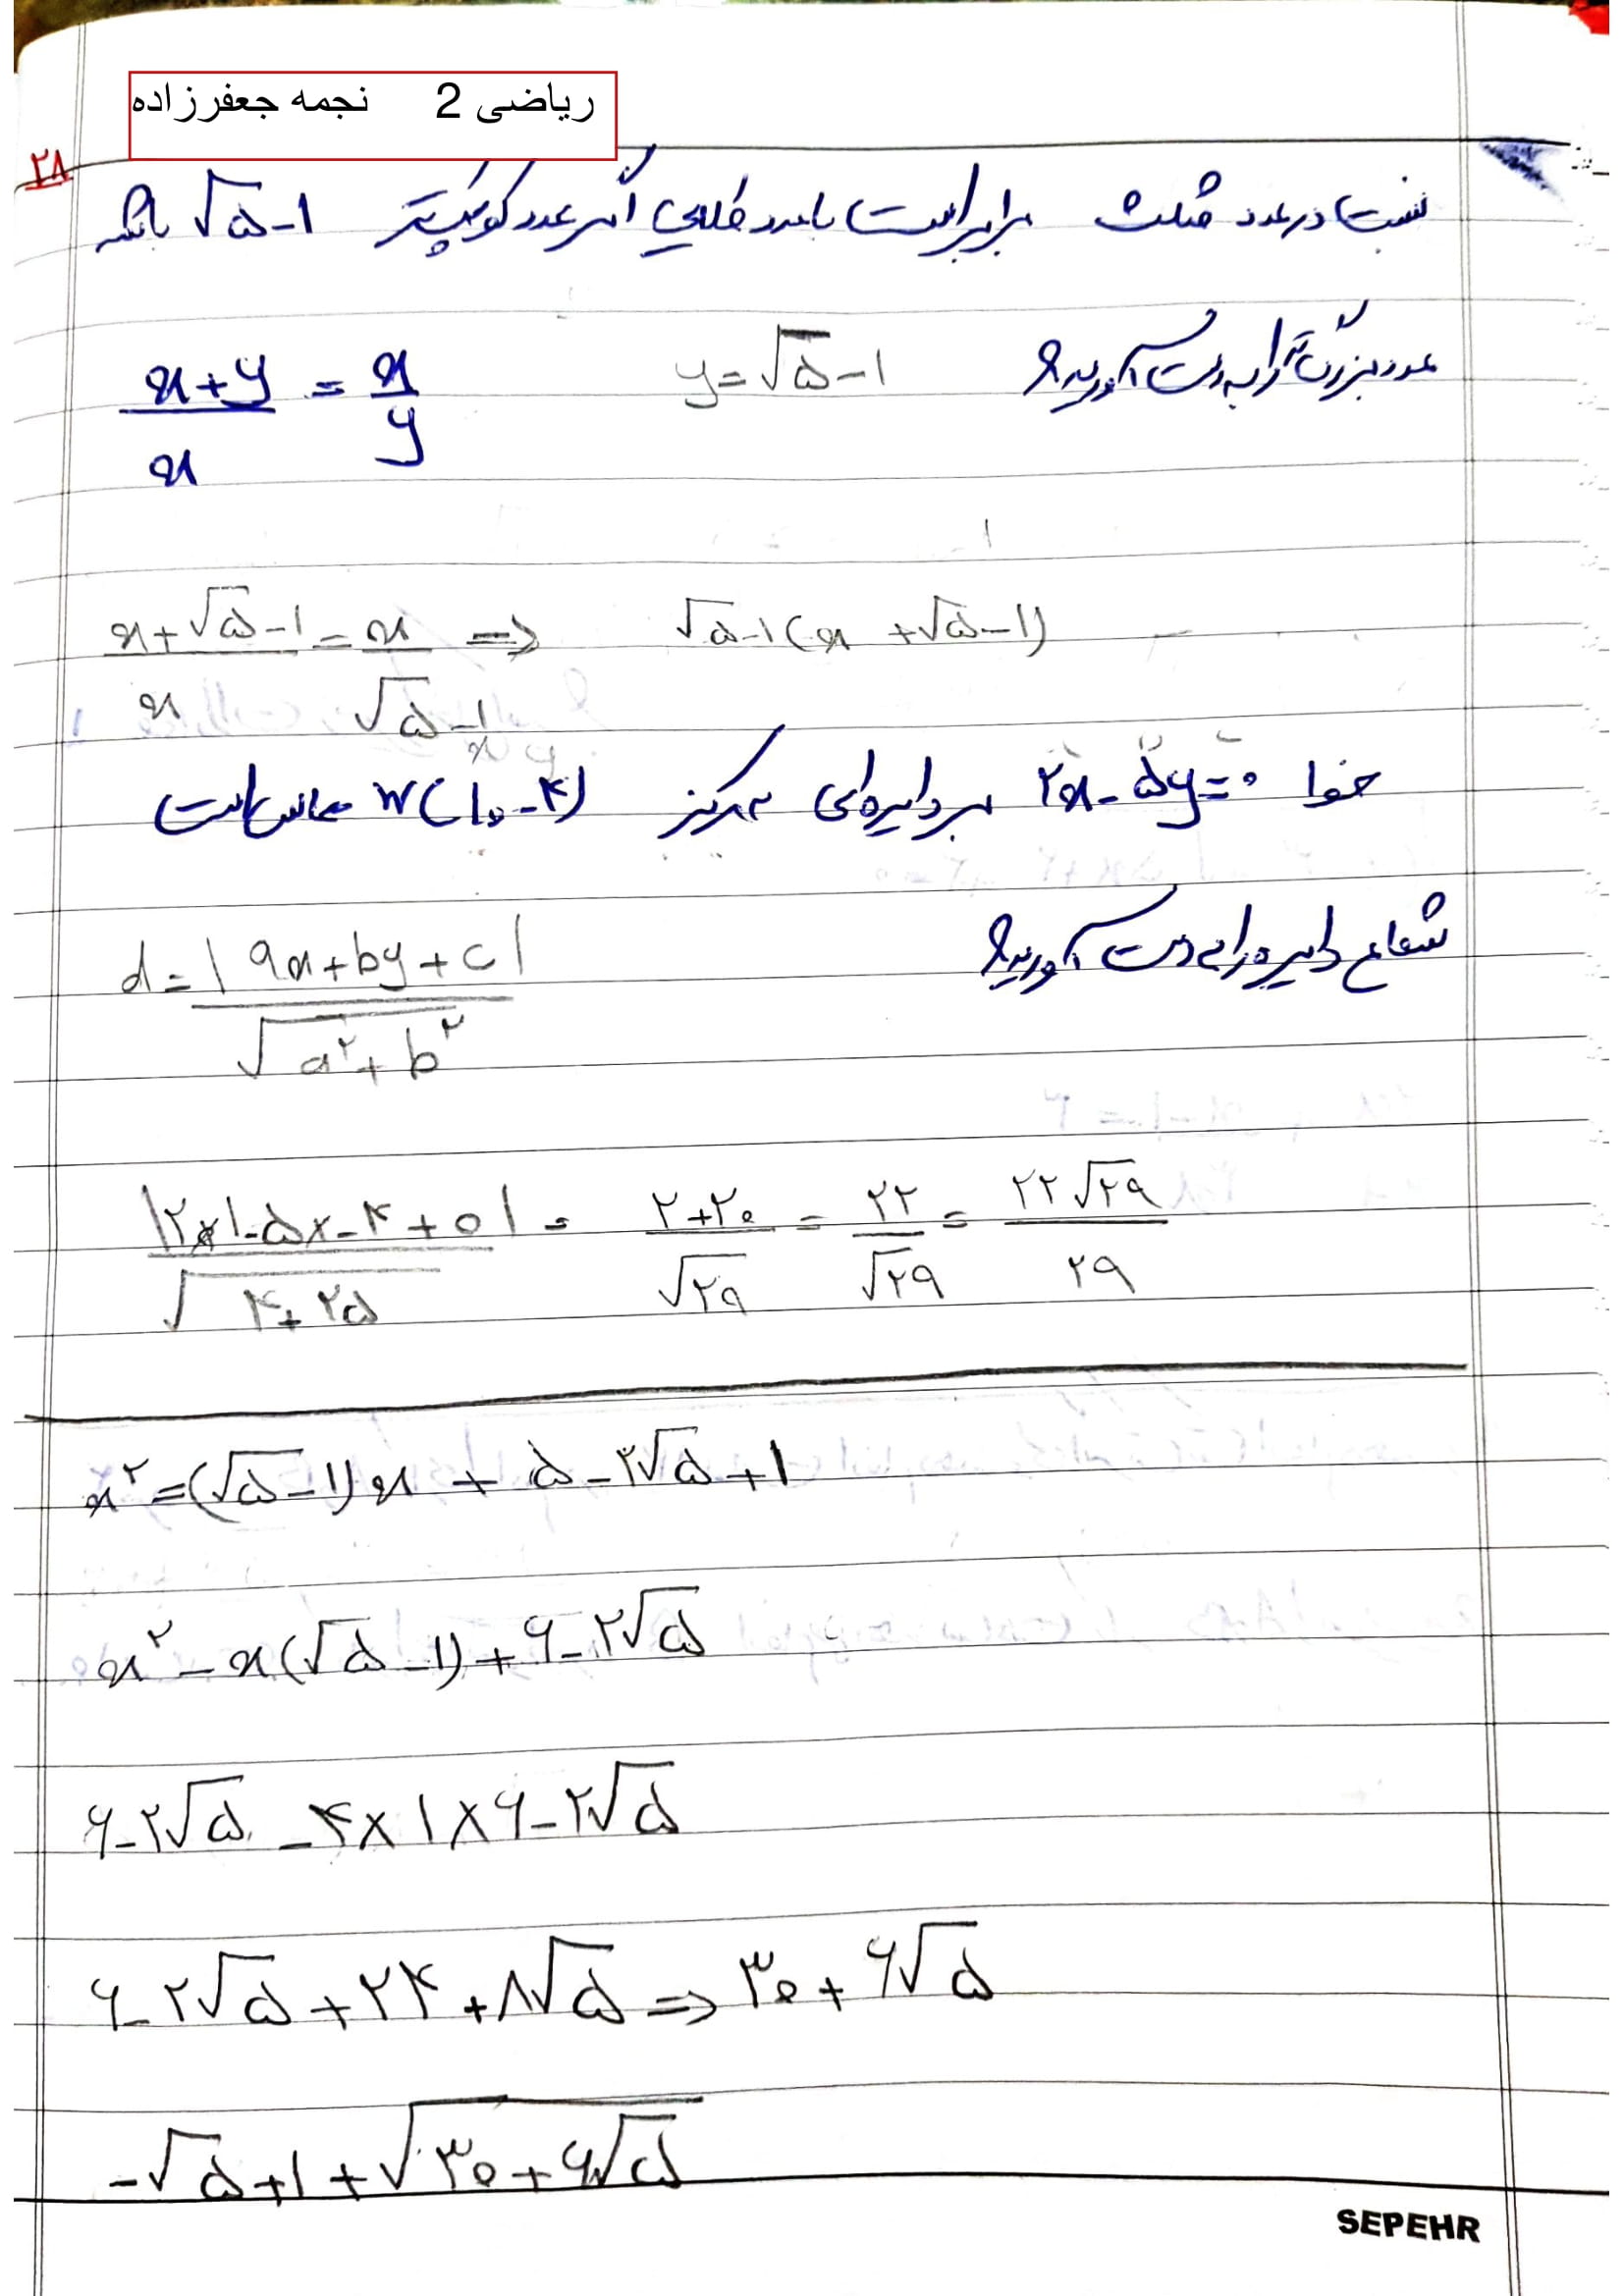 ریاضی 2 نجمه جعفرزاده
۲۸
نسبت دو عدد مثبت برابر است با عدد طلایی اگر عدد کوچکتر √۵-۱ باشد
عدد بزرگتر را به دست آورید؟ y=√۵-۱
(x+y)/x = x/y
(x+√۵-۱)/x = x/(√۵-۱) ⇒ √۵-۱(x+√۵-۱)
خط ۲x-۵y=۰ بر دایره‌ای به مرکز W(۱و-۴) مماس است
شعاع دایره را به دست آورید؟
d = |ax+by+c|/√(a²+b²)
|۲×۱-۵×-۴+۰|/√(۴+۲۵) = (۲+۲۰)/√۲۹ = ۲۲/√۲۹ = ۲۲√۲۹/۲۹
x²=(√۵-۱)x + ۵-۲√۵+۱
x²-x(√۵-۱)+۶-۲√۵
۶-۲√۵-۴×۱×۶-۲√۵
۶-۲√۵+۲۴+۸√۵ ⇒ ۳۰+۶√۵
-√۵+۱+√(۳۰+۶√۵)
SEPEHR